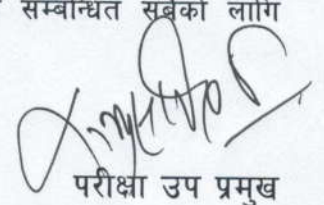 सम्बन्धित सबैको लागि
परीक्षा उप प्रमुख